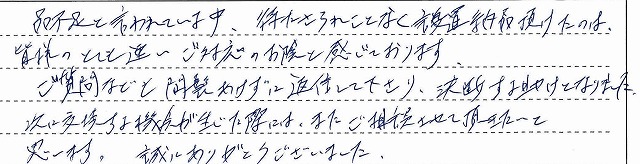 品不足と言われている中、待たされることなく設置納品頂けたのは、
皆様のとても速いご対応のお陰と感じております。
ご質問などにも間髪あけずに返信して下さり、決断する助けとなりました。
次に交換する機会が生じた際には、またご相談させて頂きたいと
思います。誠にありがとうございました。